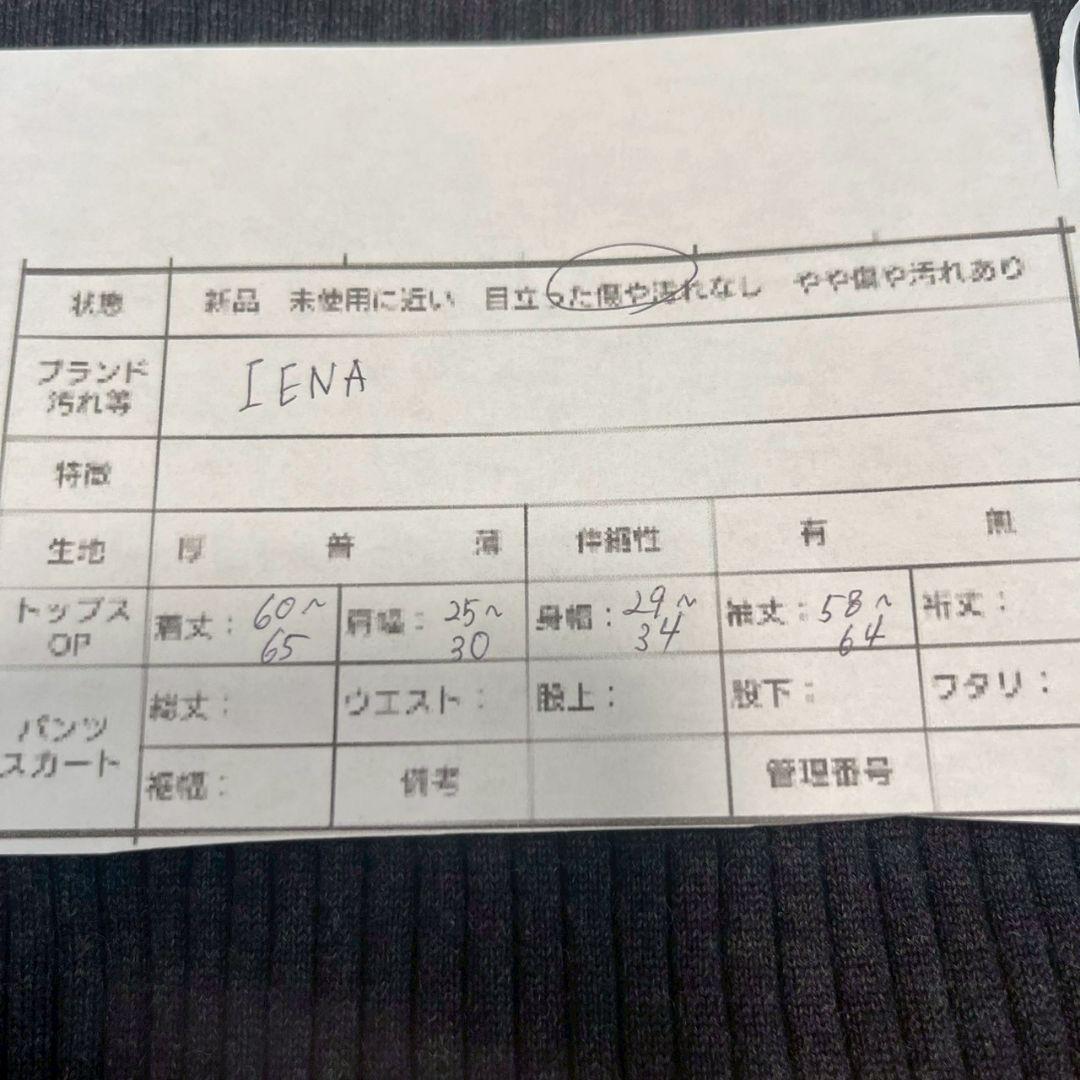 状態 新品 未使用に近い 目立った傷や汚れなし やや傷や汚れあり
ブランド 汚れ等 IENA
特徴
生地 厚 普 薄 伸縮性 有 無
トップス OP 着丈：60～65 肩幅：25～30 身幅：29～34 袖丈：58～64 裄丈：
パンツ スカート 総丈： ウエスト： 股上： 股下： ワタリ：
裾幅： 備考 管理番号